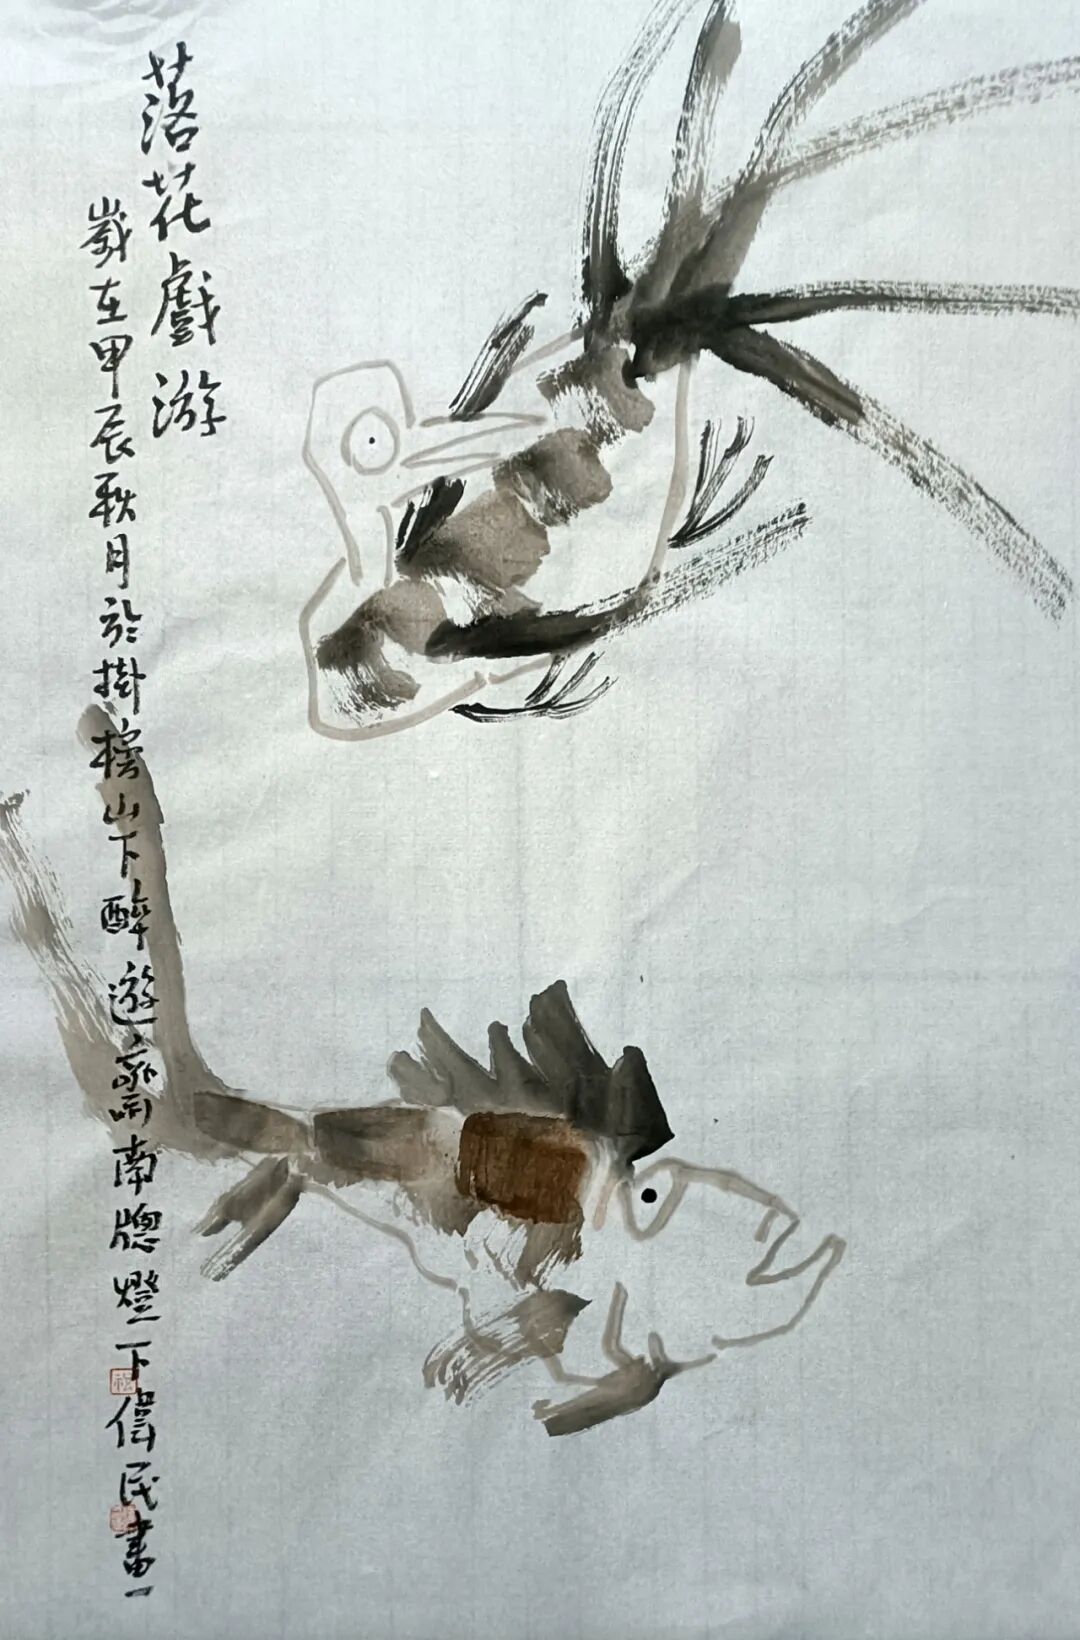 落花戲游
歲在甲辰秋月於掛榜山下醉遊齋南牕燈下偉民畫